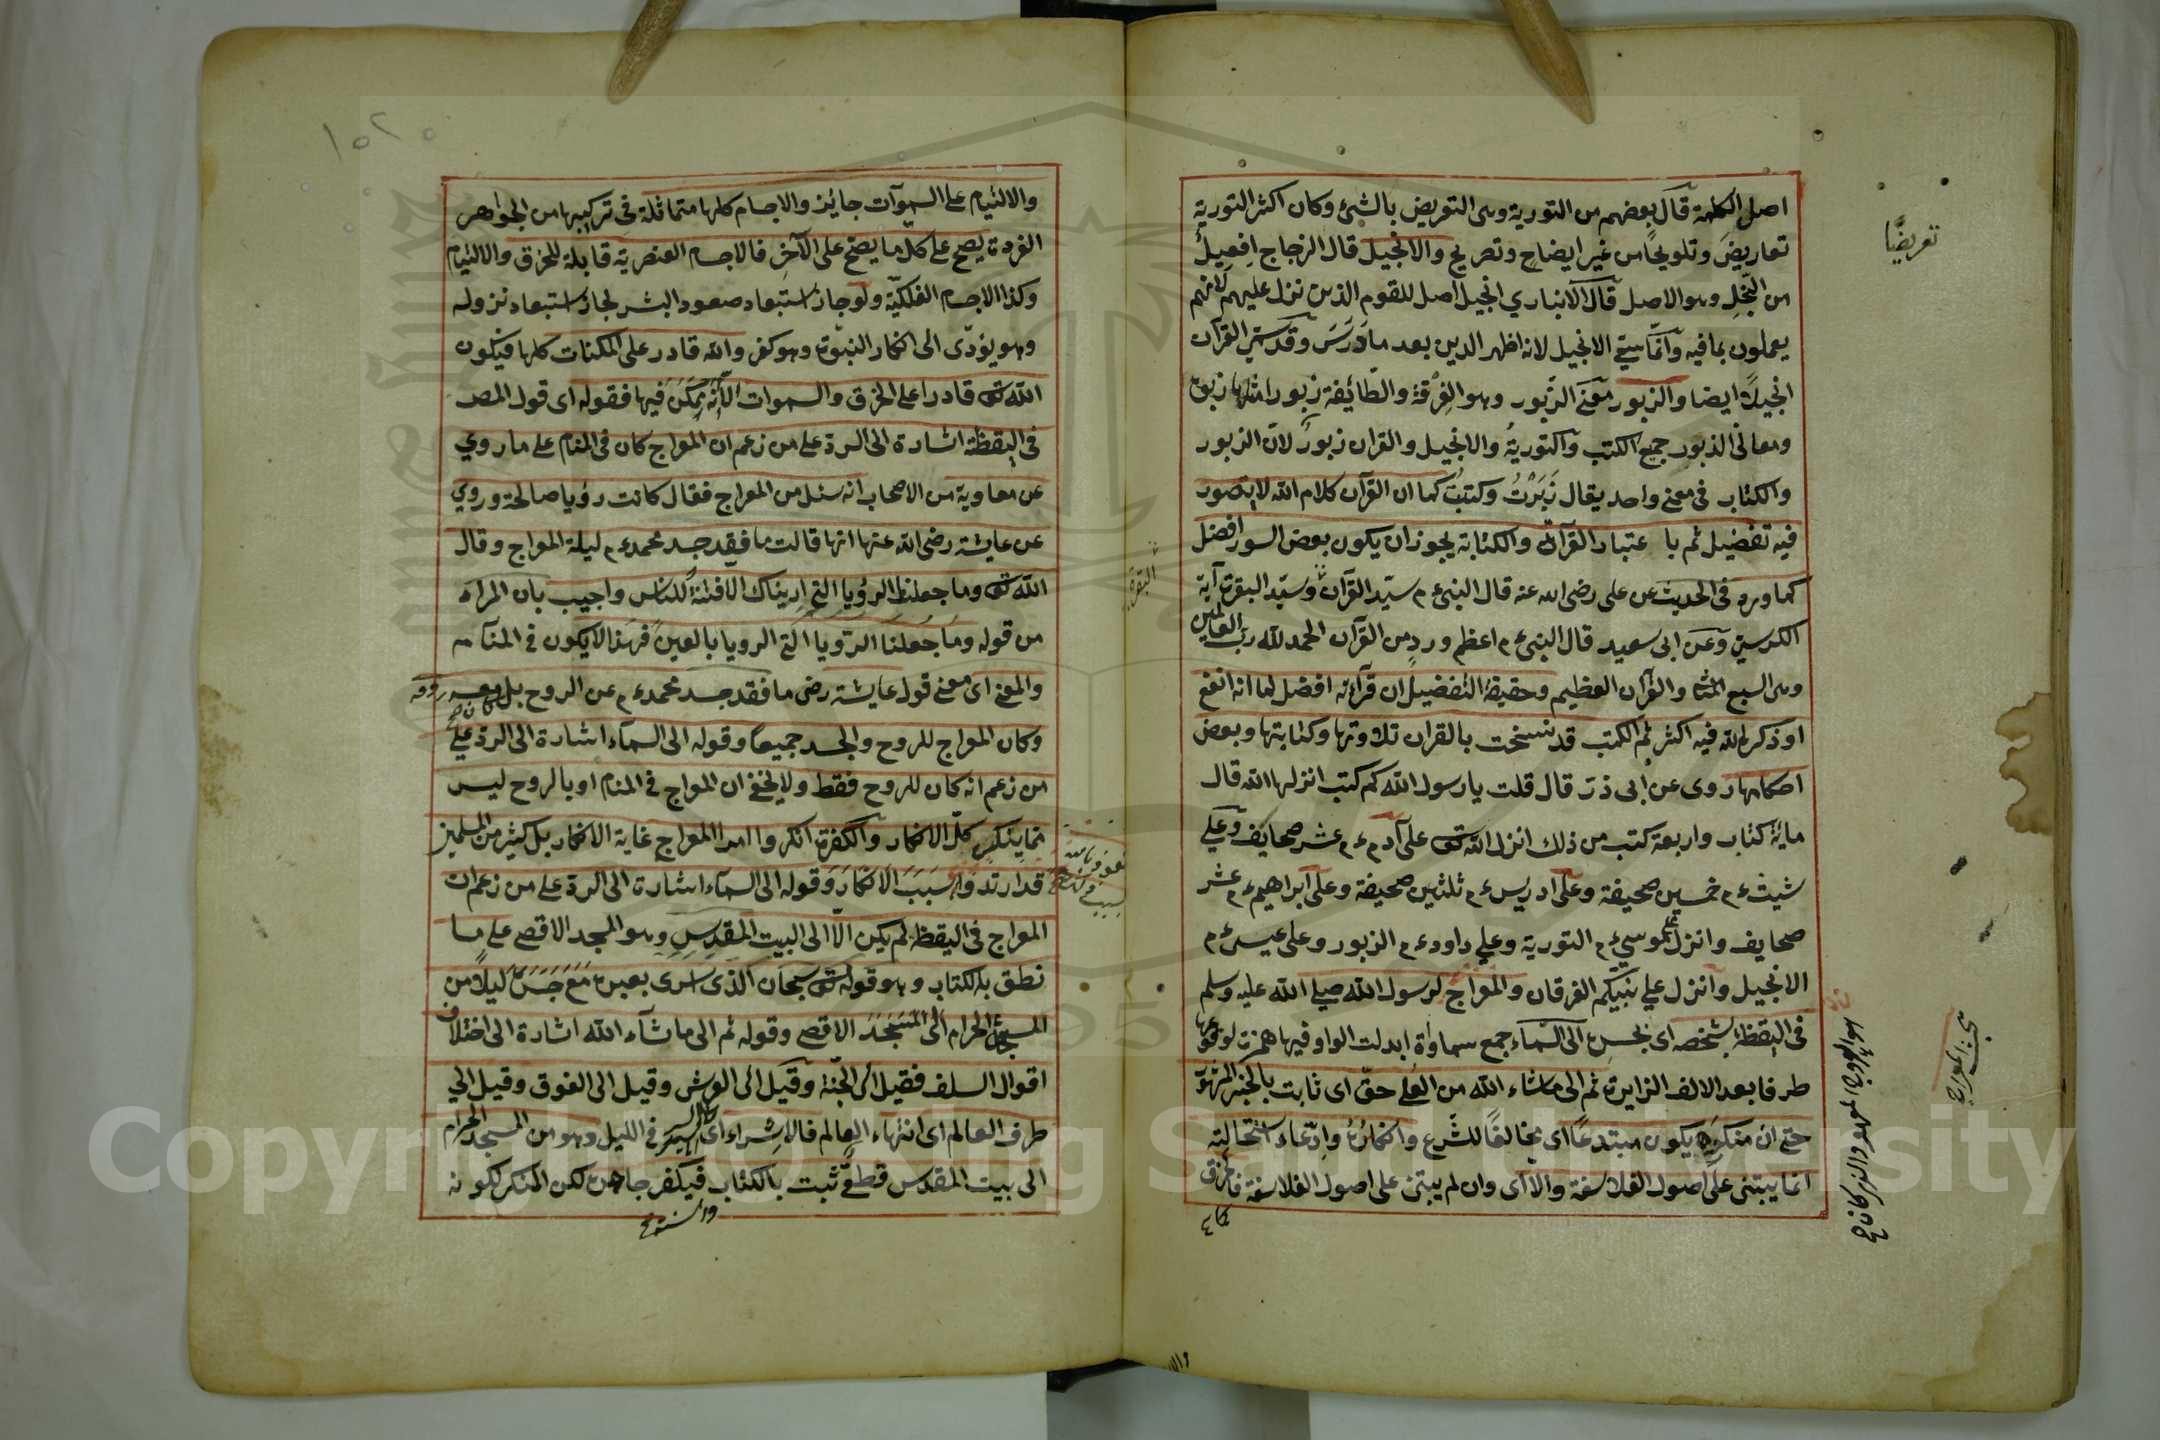 اصل الكلمة قال بعضهم من التورية وهى التعريض بالشئ وكان اكثر التورية
تعاريض وتلويحا من غير ايضاح وتصريح والانجيل قال الزجاج افعيل
من النجل وهو الاصل قال الانبارى انجيل اصل للقوم الذين نزل عليهم لانهم
يعملون بما فيه وانما سمي الانجيل لانه اظهر الدين بعد ما درس وقد سمي القرآن
انجيلا ايضا والزبور معنى الزبور وهو الفرقة والطائفة زبورا
ومعانى الزبور جميع الكتب والتورية والانجيل والقران زبور لان الزبور
والكتاب فى معنى واحد يقال زبرت وكتبت كما ان القرآن كلام الله لا يتصور
فيه تفضيل ثم با عتبار القرآن والكتابة يجوز ان يكون بعض السور افضل
كما ورد فى الحديث عن على رضى الله عنه قال النبى ءم سيد القرآن وسيد البقرة آية
الكرسى وعن ابى سعيد قال النبى ءم اعظم ورد من القرآن الحمد لله رب العالمين
وهى السبع المثانى والقرآن العظيم وحقيقة التفضيل ان قرآءته افضل لما انه انفع
او ذكر الله فيه اكثر ثم الكتب قد نسخت بالقران تلاوتها وكتابتها وبعض
احكامها روى عن ابى ذر قال قلت يا رسول الله كم كتب انزلها الله قال
ماية كتاب واربعة كتب من ذلك انزل الله تع على آدم ءم عشر صحايف وعلى
شيث ءم خمسين صحيفة وعلى ادريس ءم ثلثين صحيفة وعلى ابراهيم ءم عشر
صحايف وانزل على موسى ءم التورية وعلى داود ءم الزبور وعلى عيسى ءم
الانجيل وانزل على نبيكم الفرقان والمعراج لرسول الله صلى الله عليه وسلم
فى اليقظة بشخصه اى بجسده الى السماء جمع سماوة ابدلت الواو فيها همزة لوقوعها
طرفا بعد الالف الزايرة ثم الى ما شاء الله من العلى حق اى ثابت بالخبر المشهور
حتى ان منكره يكون مبتدعا اى مخالفا للشرع وانكاره وادعاء استحالته
انما يبتنى على اصول الفلاسفة والا اى وان لم يبتن على اصول الفلاسفة فالخرق
تعريضًا
البقرة
بحث المعراج
والالتيام على السموآت جايز والاجسام كلها متماثلة فى تركيبها من الجواهر
الفردة يصح على كل ما يصح على الآخر فالاجسام العنصرية قابلة للخرق والالتيام
وكذا الاجسام الفلكية ولو جاز استبعاد صعود البشر لجاز استبعاد نزوله
وهو يؤدى الى انكار النبوة وهو كفر والله قادر على الممكنات كلها فيكون
الله تع قادرا على الخرق والسموات فيها فقوله اى قول المصـ
فى اليقظة اشارة الى الرد على من زعم ان المعراج كان فى المنام على ما روي
عن معاوية من الاصحاب انه سئل من المعراج فقال كانت رؤيا صالحة وروي
عن عايشة رضى الله عنها انها قالت ما فقد جسد محمد ءم ليلة المعراج وقال
الله تع وما جعلنا الرؤيا التى اريناك الا فتنة للناس واجيب بان المراد
من قوله وما جعلنا الرؤيا التى الرويا بالعين فهذا لا يكون فى المنام
والمعنى اى معنى قول عايشة رضى ما فقد جسد محمد ءم عن الروح بل كان معه روحه
وكان المعراج للروح والجسد جميعا وقوله الى السمآء اشارة الى الرد على
من زعم انه كان للروح فقط ولا يخفى ان المعراج فى المنام او بالروح ليس
مما ينكر كل الانكار والكفرة انكروا امر المعراج غاية الانكار بل كثير من المسلمين
قد ارتدوا بسبب الانكار وقوله الى السمآء اشارة الى الرد على من زعم ان
المعراج فى اليقظة لم يكن الا الى البيت المقدس وهو المسجد الاقصى على ما
نطق به الكتاب وهو قوله تع سبحان الذى اسرى بعبده مع جسده ليلا من
المسجد الحرام الى المسجد الاقصى وقوله ثم الى ما شآء الله اشارة الى اختلاف
اقوال السلف فقيل الى الجنة وقيل الى العرش وقيل الى الفوق وقيل الى
طرف العالم اى انتهاء العالم فالاسراء اى السير فى الليل وهو من المسجد الحرام
الى بيت المقدس قطعى ثبت بالكتاب فيكفر جاحده لكن المنكر لكونه
Copyright © King Saud University
1957